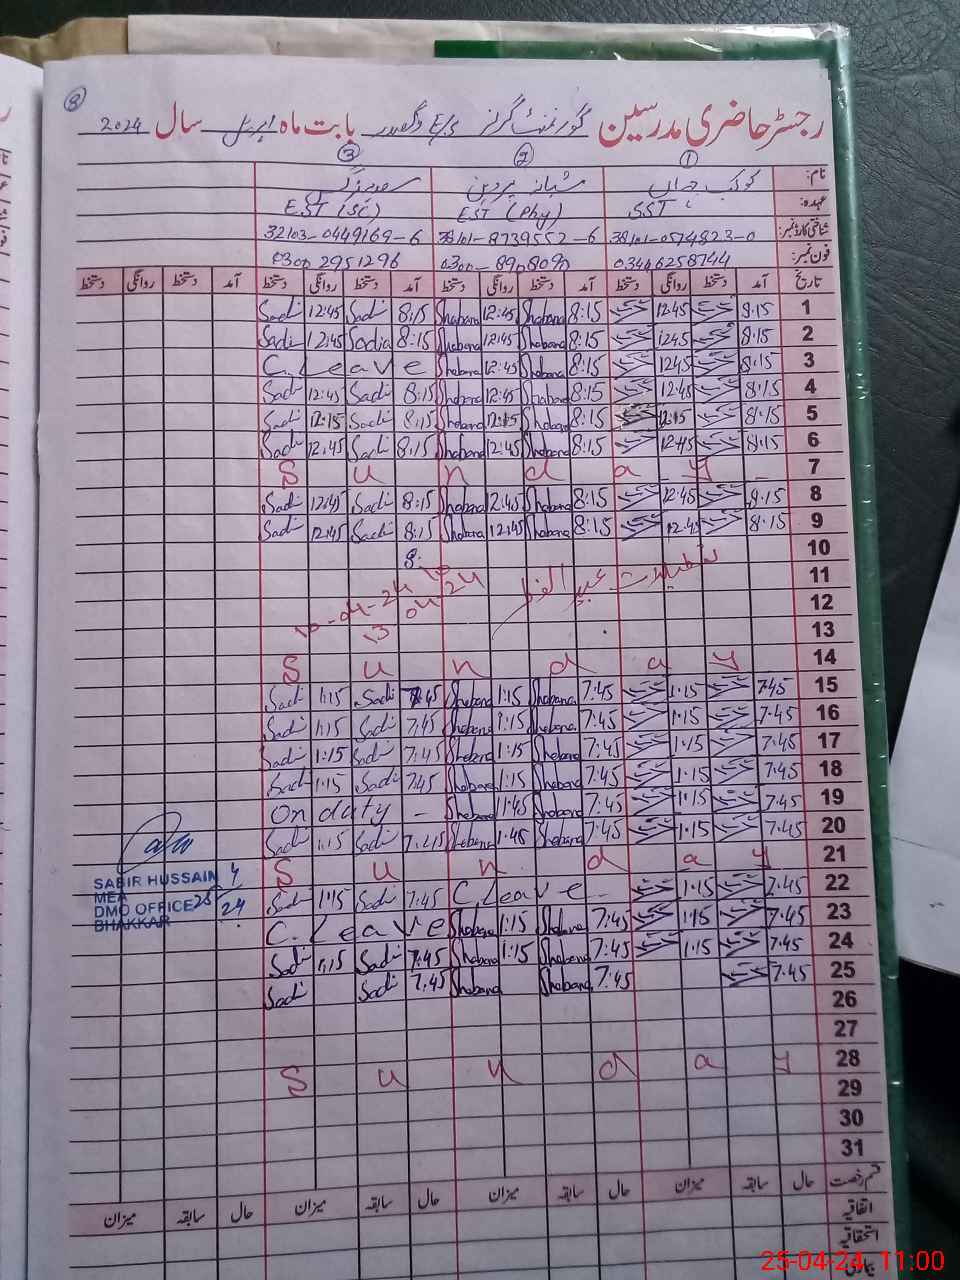 8
رجسٹر حاضری مدرسین گورنمنٹ گرلز بابت ماہ اپریل سال 2024
3 2 1
نام: کوکب شبانہ پروین سعدیہ
عہدہ: SST EST (Phy) EST (SC)
شناختی کارڈ نمبر: 38101-0574823-0 38101-8739552-6 32103-0449169-6
فون نمبر: 03446258744 0300- 0300 2951296
تاریخ آمد دستخط روانگی دستخط آمد دستخط روانگی دستخط آمد دستخط روانگی دستخط آمد دستخط روانگی دستخط
Sadi 12:45 Sadi 8:15 Shabana 12:45 Shabana 8:15 12:45 8:15 1
Sadi 12:45 Sadia 8:15 Shabana 12:45 Shabana 8:15 12:45 8:15 2
C. Leave Shabana 12:45 Shabana 8:15 12:45 8:15 3
Sadi 12:45 Sadi 8:15 Shabana 12:45 Shabana 8:15 12:45 8:15 4
Sadi 12:15 Sadi 8:15 Shabana 12:15 Shabana 8:15 12:15 8:15 5
Sadi 12:45 Sadi 8:15 Shabana 12:45 Shabana 8:15 12:45 8:15 6
Sunday 7
Sadi 12:45 Sadi 8:15 Shabana 12:45 Shabana 8:15 12:45 8:15 8
Sadi 12:45 Sadi 8:15 Shabana 12:45 Shabana 8:15 12:45 8:15 9
8: 10
تعطیلات عید الفطر 11
10-04-24 to 12
13 04-24 13
Sunday 14
Sadi 1:15 Sadi 7:45 Shabana 1:15 Shabana 7:45 1:15 7:45 15
Sadi 1:15 Sadi 7:45 Shabana 1:15 Shabana 7:45 1:15 7:45 16
Sadi 1:15 Sadi 7:45 Shabana 1:15 Shabana 7:45 1:15 7:45 17
Sadi 1:15 Sadi 7:45 Shabana 1:15 Shabana 7:45 1:15 7:45 18
On duty - Shabana 11:45 Shabana 7:45 1:15 7:45 19
Sadi 1:15 Sadi 7:45 Shabana 1:45 Shabana 7:45 1:15 7:45 20
Sunday 21
Sadi 1:15 Sadi 7:45 C. Leave - 1:15 7:45 22
C. Leave Shabana 1:15 Shabana 7:45 1:15 7:45 23
Sadi 1:15 Sadi 7:45 Shabana 1:15 Shabana 7:45 1:15 7:45 24
Sadi Sadi 7:45 Shabana Shabana 7:45 7:45 25
26
27
Sunday 28
29
30
31
SABIR HUSSAIN
MEA
DMO OFFICE
BHAKKAR
25/4/24
قسم رخصت حال سابقہ میزان حال سابقہ میزان حال سابقہ میزان
اتفاقیہ
استحقاقیہ
25-04-24 11:00